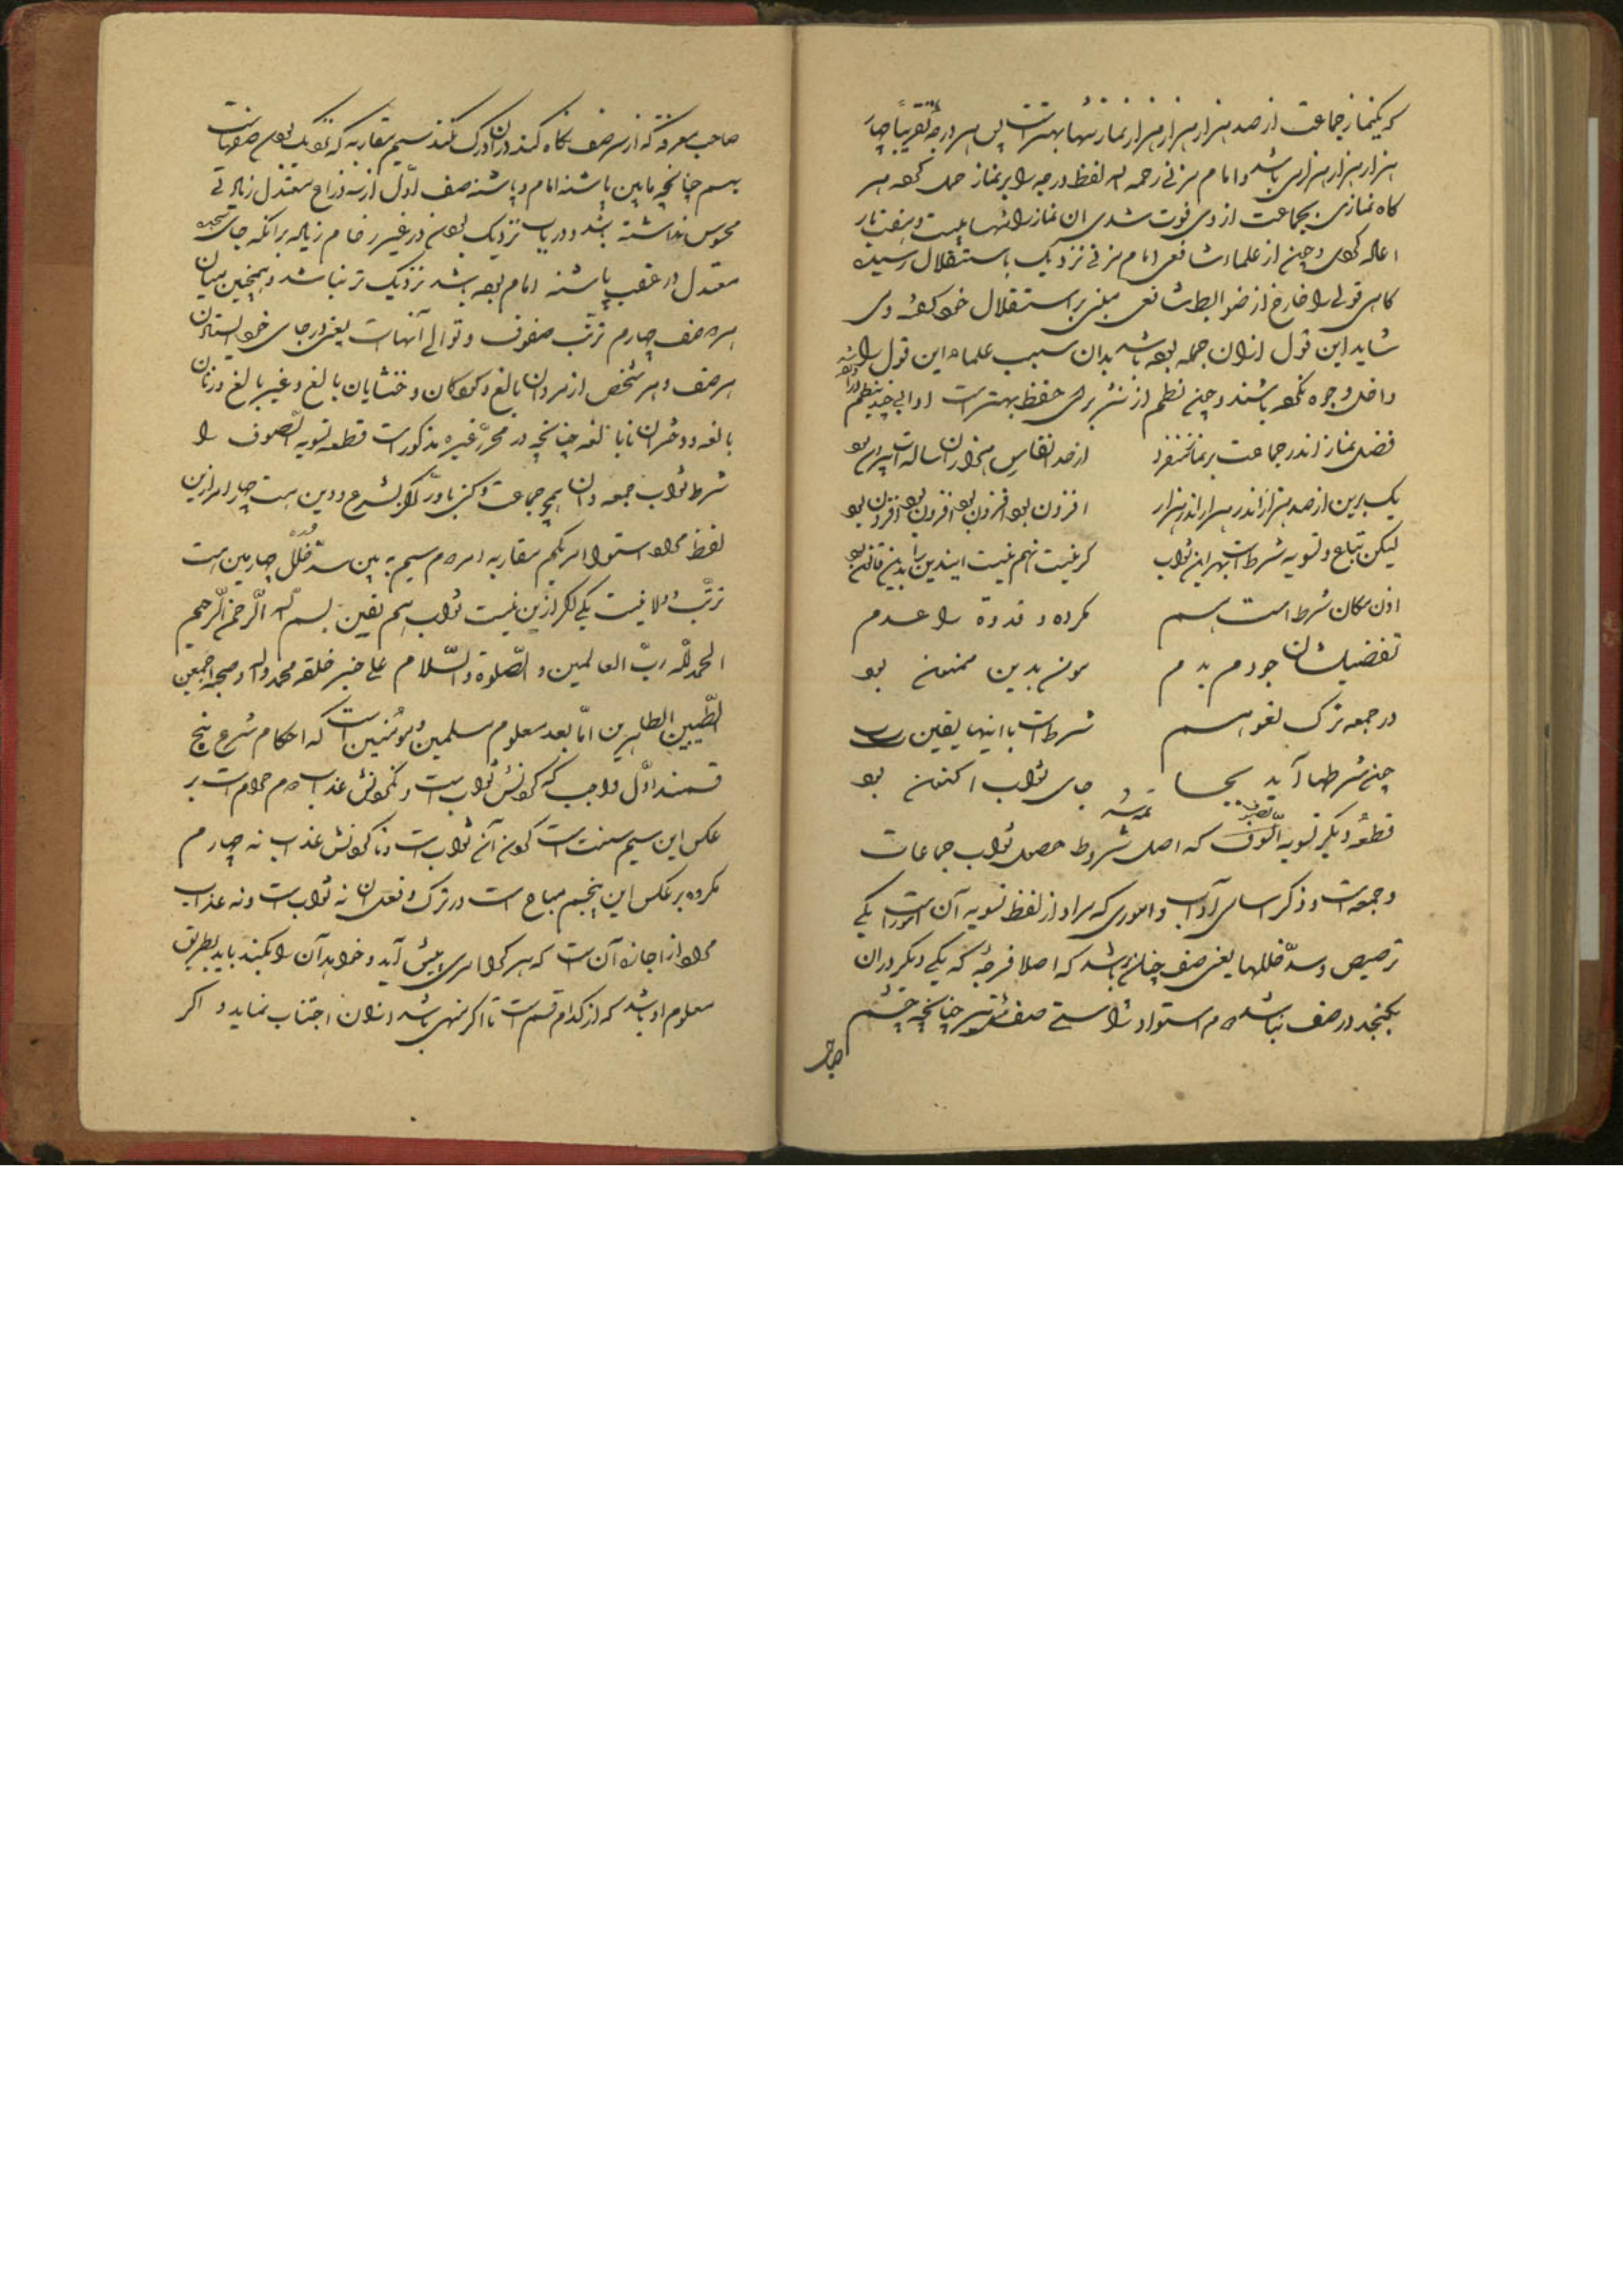 که یکنماز جماعت از صد هزار هزار هزار هزار نماز تنها بهتر است پس هر درجه تقریباً چهار
هزار هزار هزاری باشد و امام مزنی رحمه الله لفظ درجه را بر نماز حمل کرده هر
کاه نمازی بجماعت از وی فوت شدی ان نماز را تنها بیست و هفت بار
اعاده کردی و چون از علماء شافعی امام مزنی نزدیک باستقلال رسیده
کاهی قولی را خارج از ضوابط شافعی مبنی بر استقلال خود کفته وی
شاید این قول ازان جمله بوده باشد بدان سبب علماء این قول را
داخل وجوه نکرده باشند و چون نظم از نثر برای حفظ بهتر است
فضل نماز اندر جماعت بر نماز منفرد
از صد
یک برین از صد هزار اندر هزار اندر هزار
افزون بود افزون بود افزون بود افزون بود
لیکن تباع و تسویه شرط است بهر این ثواب
کر نیست نهم نیست
اذن مکان شرط است هم
مکروه و قدوة را عدم
تفضیلشان جو دم بدم
بدین ممنون بود
در جمعه ترک لغو هم
شرط است با اینها یقین
چون شرطها آید بجا
جای ثواب اکنون بود
قطعهٔ دیکر تسویه الصفوف که اصل شروط حصول ثواب جماعات
و جمعه است و ذکر اسامی آداب و اموری که مراد از لفظ تسویه آن امور است یکی
ترصیص و سدّ خللها یعنی صف چنان باشد که اصلا فرجه که یکی دیکر دران
بکنجد در صف نباشد دوم استواء و راستی صف چنانچه چشم
صاحب
صاحب معرفة که از سر صف نکاه کند دران ادرک کند سیم مقاربه که نزدیک بودن صفهاست
بهم چنانچه مابین پاشنه امام و پاشنه صف اوّل از سه ذراع معتدل زیادتی
محسوس نداشته باشد و در باب نزدیک بودن در غیر زخام زیاده برانکه جای سجده
معتدل در عقب پاشنه امام بوده باشد نزدیک تر نباشد و همچنین میان
هر دو صف چهارم ترتّب صفوف و توالی آنهاست یعنی در جای خود ایستادن
هر صف و هر شخص از مردان بالغ و کودکان و خنثایان بالغ و غیر بالغ و زنان
بالغه و دختران نابالغه چنانچه در محرّر و غیره مذکور است قطعه تسویه الصفوف را
شرط ثواب جمعه دان همچو جماعت و کنی باور کر بشرع و دین هست چهار امر ازین
لفظ مراد استواء امر یکم مقاربه دوم سیم به بین سدّ خلل چارمین هست
ترتّب و ولا نیست یکی اکر ازین نیست ثواب هم یقین بسم الله الرّحمن الرّحیم
الحمد للّه ربّ العالمین و الصّلوة و السّلام علی خیر خلقه محمد و آله و صحبه اجمعین
الطّیبین الطاهرین امّا بعد معلوم مسلمین و مؤمنین است که احکام شرع پنج
قسمند اوّل واجب که کردنش ثواب است و نکردنش عذاب دوم حرام است بر
عکس این سیم سنت است کردن آن ثواب است و نا کردنش عذاب نه چهارم
مکروه بر عکس این پنجم مباح است در ترک و فعل ان نه ثواب است و نه عذاب
مراد از اجازه آن است که هر کرا امری پیش آید و خواهد آن را بکند باید بطریق
معلوم او باشد که از کدام قسم است تا اکر منهی باشد ازان اجتناب نماید و اکر